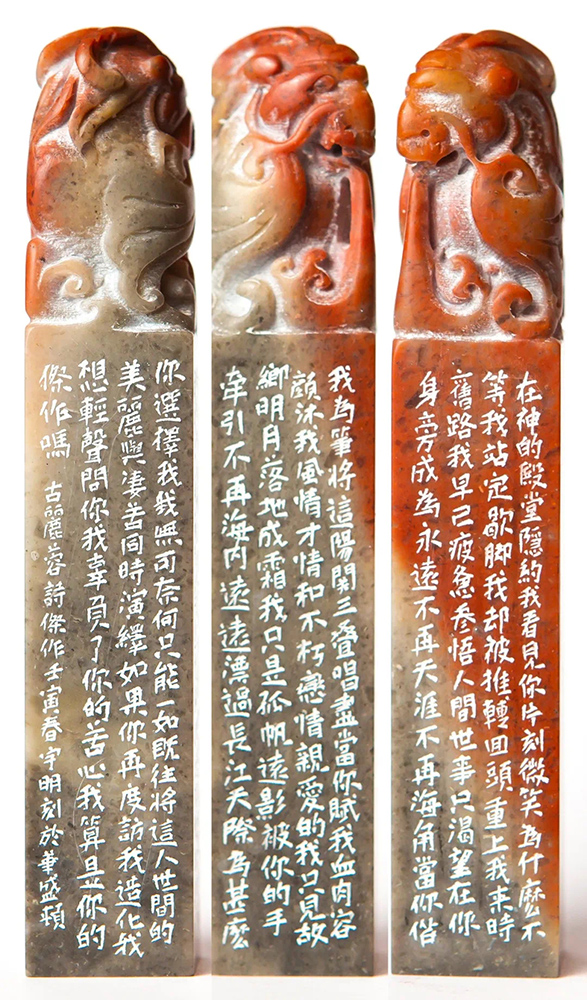 在神的殿堂隱約我看見你片刻微笑為什麼不
等我站定歇脚我却被推轉回頭重上我来時
舊路我早已疲惫参悟人間世事只渴望在你
身旁成為永遠不再天涯不再海角當你偕
我為筆將這陽関三叠唱盡當你賦我血肉容
顔沐我風情才情和不朽戀情親愛的我只見故
鄉明月落地成霜我只是孤帆遠影被你的手
牽引不再海内遠遠漂過長江天際為甚麼
你選擇我我無可奈何只能一如既往將這人世間的
美麗與凄苦同時演繹如果你再度訪我造化我
想輕聲問你我辜負了你的苦心我算是你的
傑作嗎 古麗蓉詩傑作壬寅春宇明刻於華盛頓